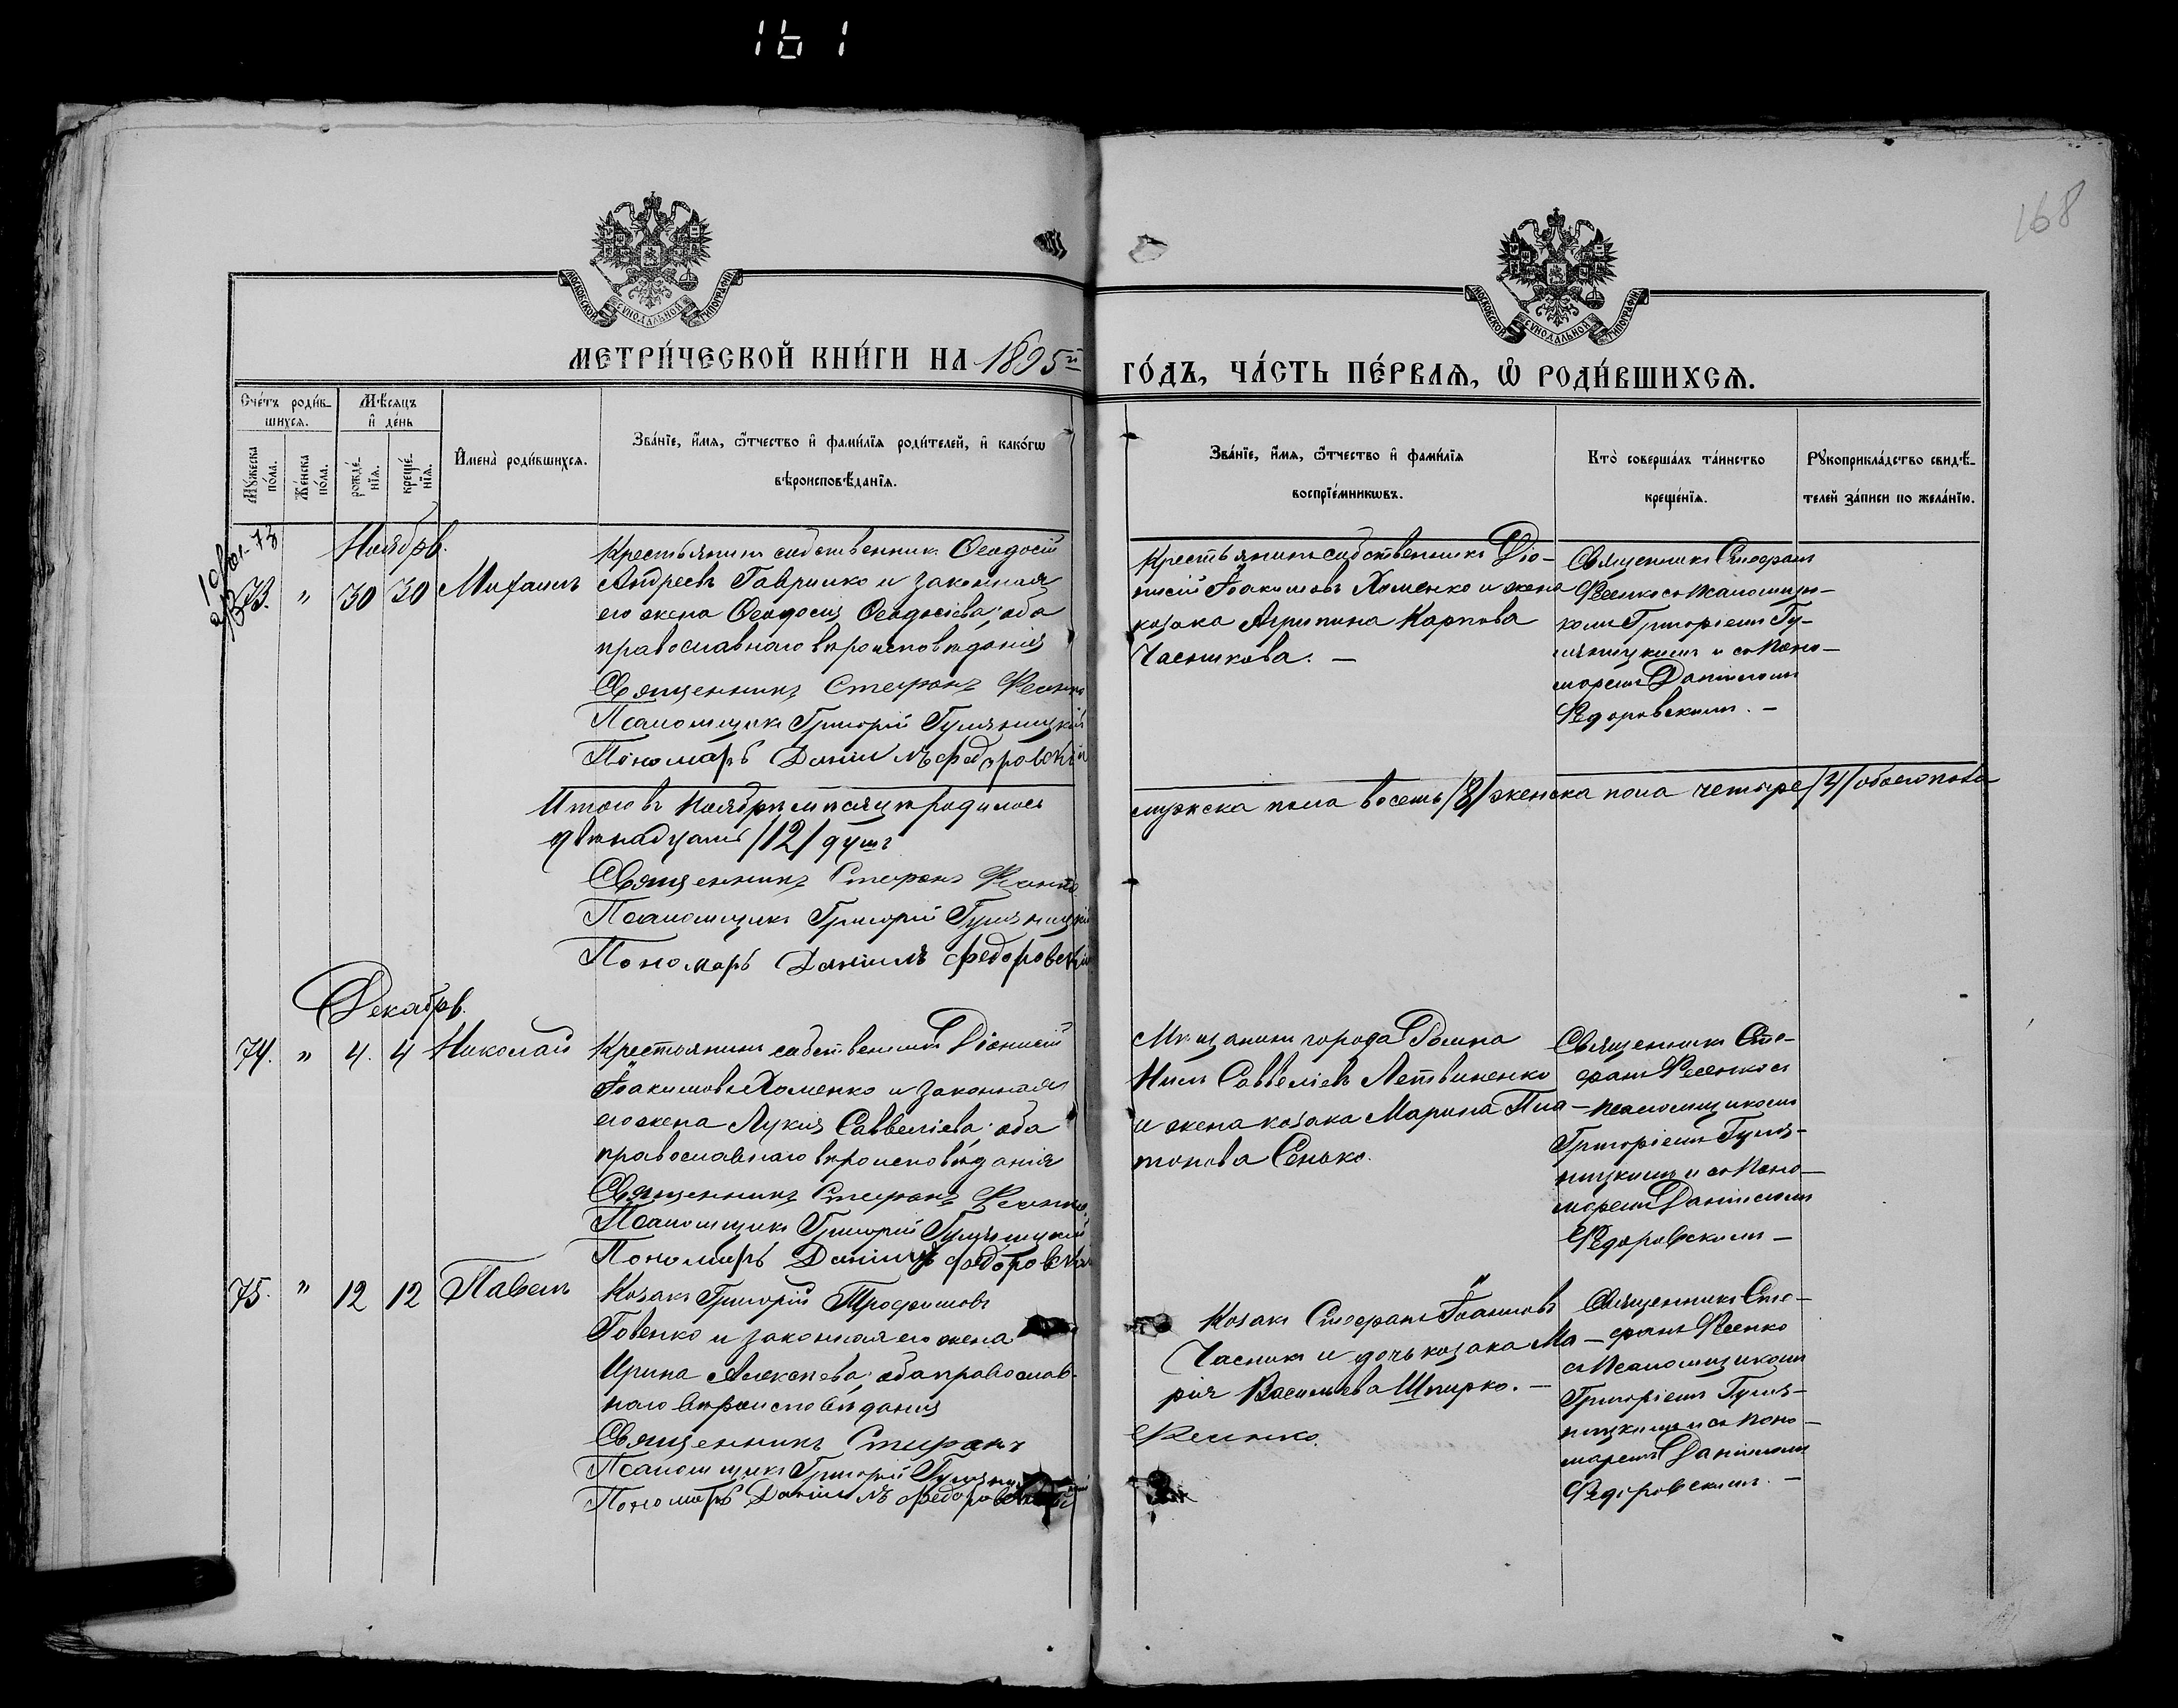 161
168
МОСКОВСКОЙ СѴНОДАЛЬНОЙ ТИПОГРАФІИ
МОСКОВСКОЙ СѴНОДАЛЬНОЙ ТИПОГРАФІИ
МЕТРИ́ЧЕСКОЙ КНИ́ГИ НА 1895й
ГО́ДЪ, ЧА́СТЬ ПЕ́РВАѦ, Ѡ РОДИ́ВШИХСѦ.
Сче́тъ роди́вшихсѧ.
Мѣ́сѧцъ и де́нь
Мꙋ́жеска по́ла.
Же́нска по́ла.
рожде́нїѧ.
креще́нїѧ.
Имена̀ роди́вшихсѧ.
Зва́нїе, и́мѧ, ѻ́тчество и фами́лїѧ роди́телей, и како́гѡ
вѣроисповѣ́данїѧ.
Зва́нїе, и́мѧ, ѻ́тчество и фами́лїѧ
воспрїе́мникѡвъ.
Кто̀ соверша́лъ та́инство
креще́нїѧ.
Рꙋкоприкла́дство свидѣ́телей за́писи по жела́нїю.
Ноябрь.
73. " 30 30 Михаилъ
Крестьянинъ собственникъ Ѳеодосій
Андреевъ Гаврилко и законная
его жена Ѳеодосія Ѳеодосіева; оба
православнаго вѣроисповѣданія
Священникъ Стефанъ Фесенко
Псаломщикъ Григорій Гуляницкій
Пономарь Даніилъ Федоровскій
Крестьянинъ собственникъ Діо-
нисій Іоакимовъ Хоменко и жена
козака Агрипина Карпова
Часникова. —
Священникъ Стефанъ
Фесенко съ псаломщи-
комъ Григоріемъ Гу-
ляницкимъ и съ поно-
маремъ Даніиломъ
Федоровскимъ. —
Итого въ Ноябрѣ мѣсяцѣ родилось
мужска пола восемь /8/ женска пола четыре /4/ обоего пола
двѣнадцать /12/ душъ
Священникъ Стефанъ Фесенко
Псаломщикъ Григорій Гуляницкій
Пономарь Даніилъ Федоровскій
Декабрь.
74. " 4. 4 Николай
Крестьянинъ собственникъ Діонисій
Іоакимовъ Хоменко и законная
его жена Лукія Савеліева; оба
православнаго вѣроисповѣданія
Священникъ Стефанъ Фесенко
Псаломщикъ Григорій Гуляницкій
Пономарь Даніилъ Федоровскій
Мѣщанинъ города Ромна
Нилъ Савеліевъ Летвиненко
и жена козака Марина Пла-
тонова Сенько.
Священникъ Сте-
фанъ Фесенко съ
псаломщикомъ
Григоріемъ Гуля-
ницкимъ и съ поно-
маремъ Даніиломъ
Федоровскимъ —
75. " 12 12 Павелъ
Козакъ Григорій Трофимовъ
Говенко и законная его жена
Ирина Алексѣева; оба православ-
наго вѣроисповѣданія
Священникъ Стефанъ
Фесенко.
Псаломщикъ Григорій Гуляницкій
Пономарь Даніилъ Федоровскій
Козакъ Стефанъ Іоанновъ
Часникъ и дочь козака Ма-
рія Васильева Шпирко. —
Священникъ Сте-
фанъ Фесенко
съ псаломщикомъ
Григоріемъ Гуля-
ницкимъ и съ поно-
маремъ Даніиломъ
Федоровскимъ. —